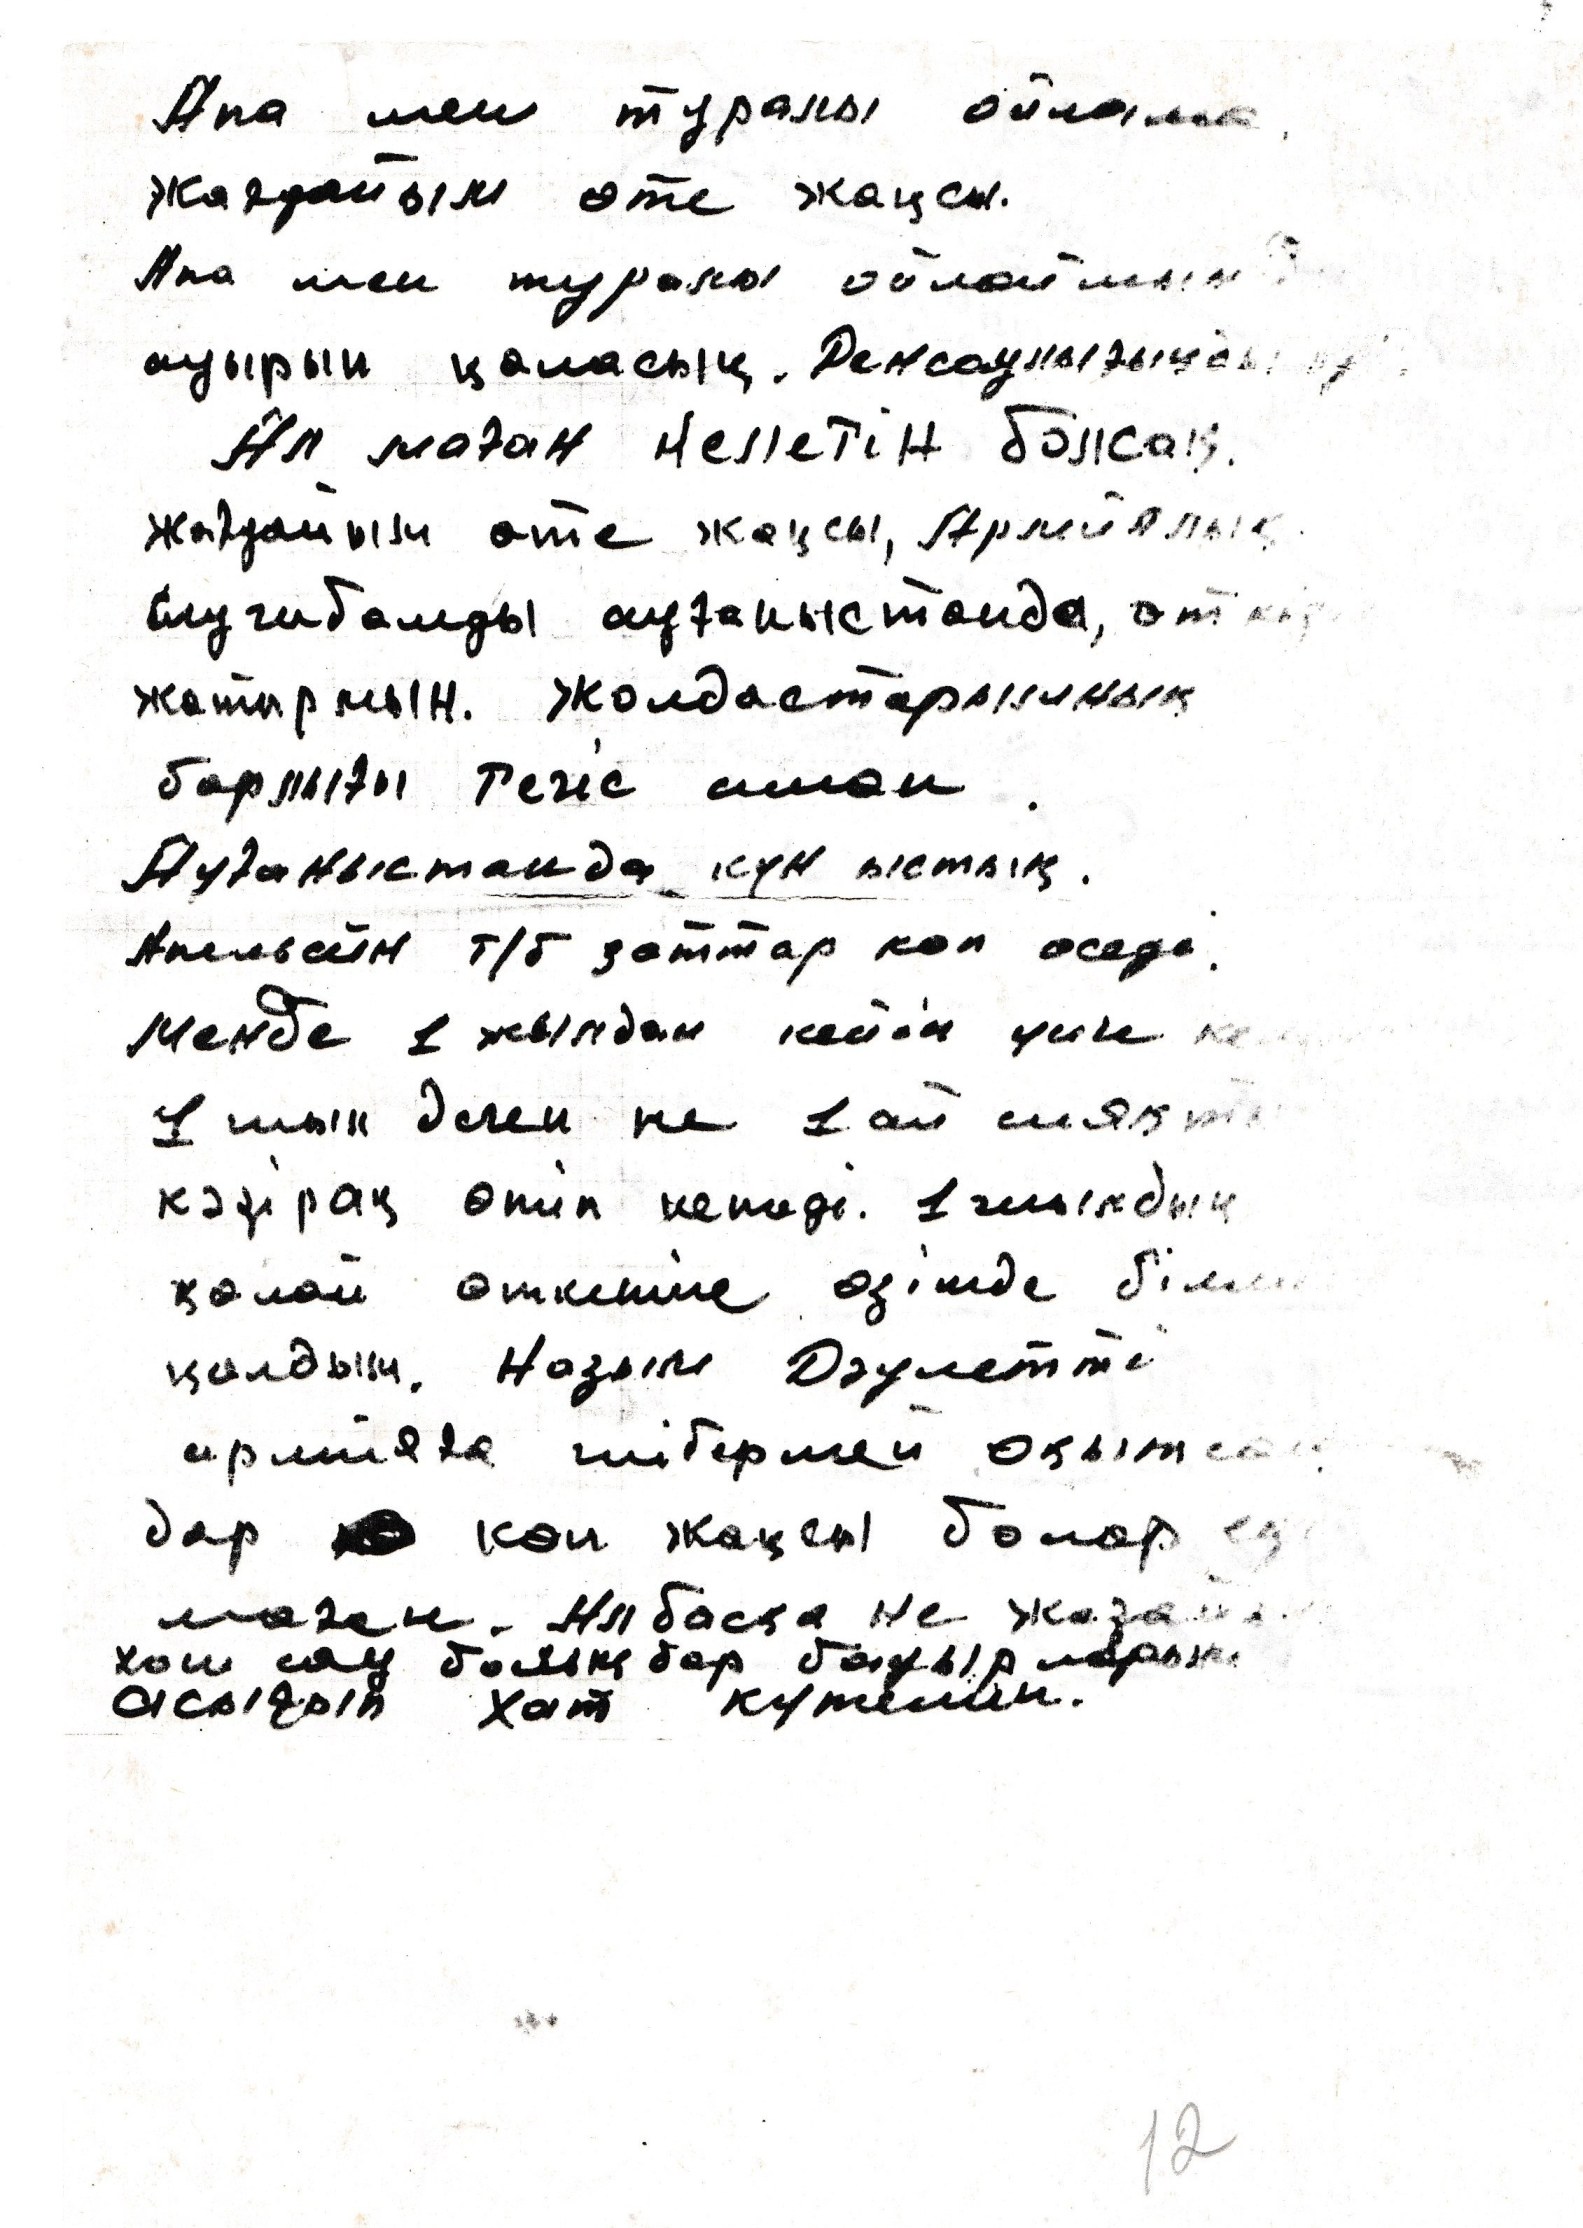 Апа мен туралы ойлама.
Жағдайым өте жақсы.
Апа мен туралы ойлаймын
ауырып қаласың. Денсаулығыңды
Ал маған келетін болсақ.
жағдайым өте жақсы, Армиялық
Служибамды ауғаныстанда, өткізіп
жатырмын. Жолдастарымның
барлығы тегіс аман.
Ауғаныстанда күн ыстық.
Апельсин т/б заттар көп өседі.
Менде 1 жылдан кейін үйге
1 жыл деген не 1 ай сияқты
кәзірақ өтіп кетеді. 1 жылдың
қалай өткеніне өзімде білмей
қалдым. Назым Дәулетті
армияға жібермей оқытсаң
дар көп жақсы болар еді
маған. Ал басқа не жазайын
хош сау болыңдар бауырларың
асығып хат күтемін.
12